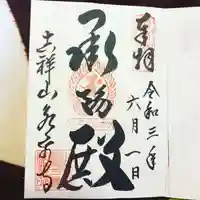 奉拝
令和三年
六月一日
承陽殿
吉祥山永平寺